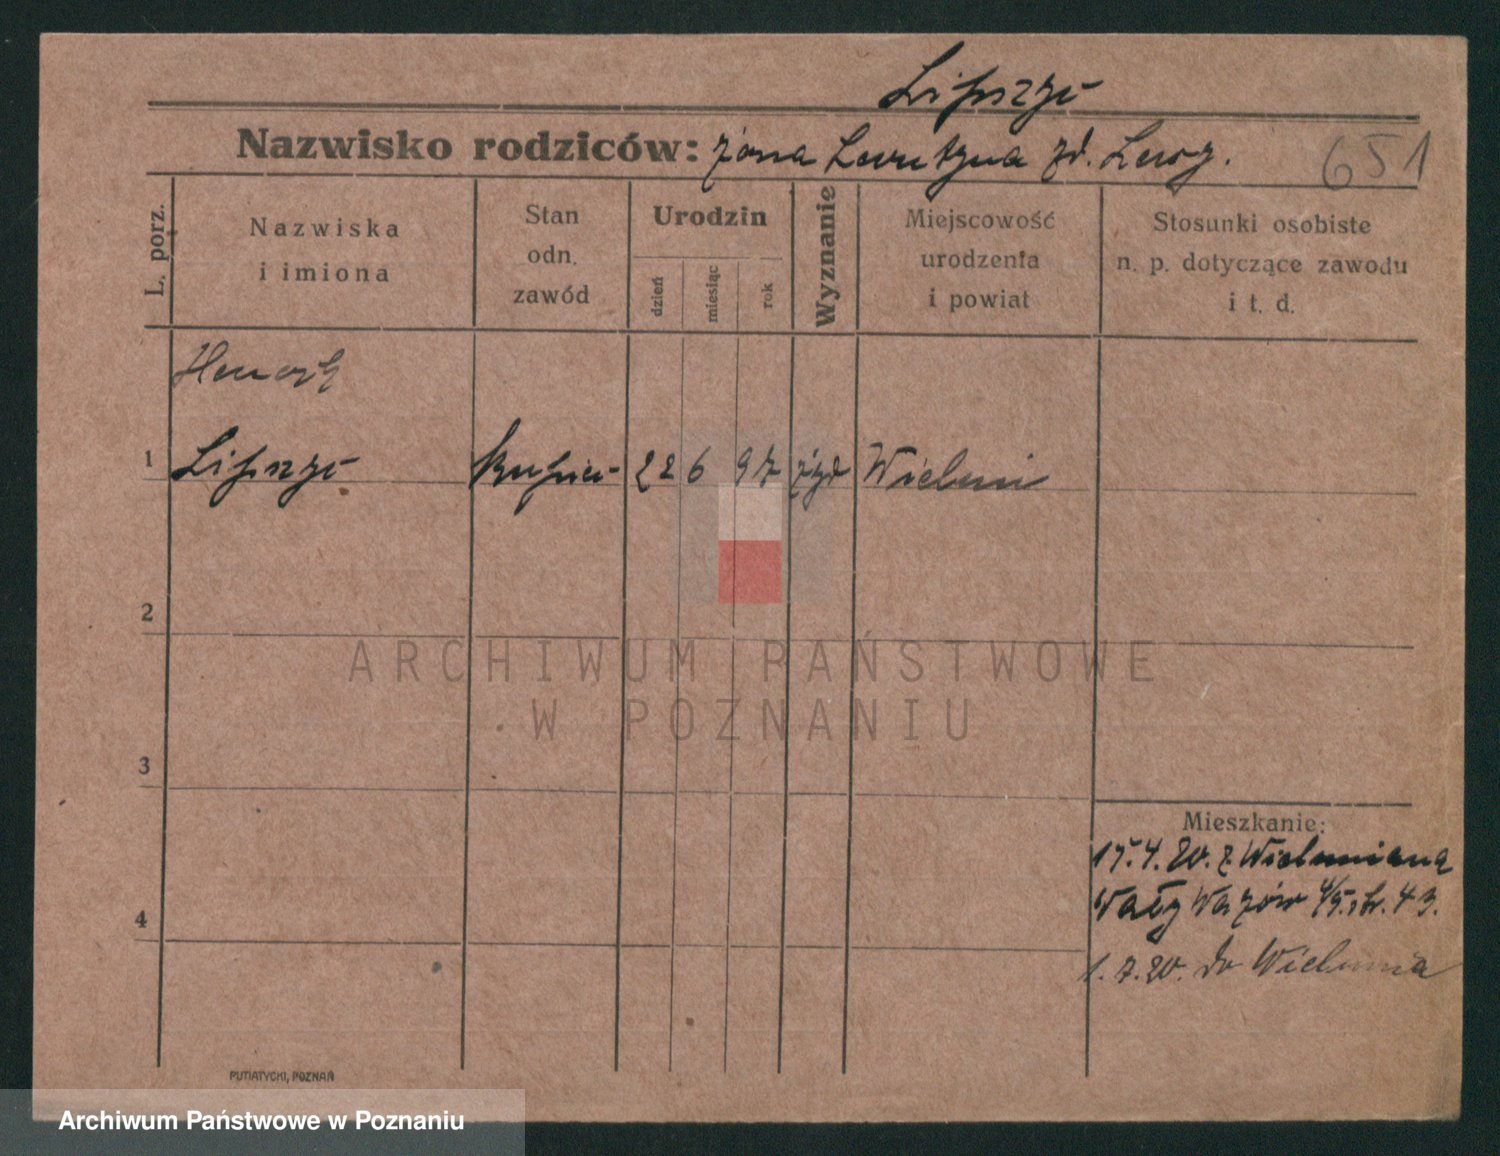 Lipszyc
Nazwisko rodziców: żona
651
L. porz.
Nazwiska
i imiona
Stan
odn.
zawód
Urodzin
dzień
miesiąc
rok
Wyznanie
Miejscowość
urodzenia
i powiat
Stosunki osobiste
n. p. dotyczące zawodu
i t. d.
Henoch
1 Lipszyc kupiec 22 6 97 żyd Wieluń
2
3
4
ARCHIWUM PAŃSTWOWE
W POZNANIU
Mieszkanie:
15.4.20. z Wielunia
Wały Wazów 43.
1.7.20. do Wielunia
PUTIATYCKI, POZNAŃ
Archiwum Państwowe w Poznaniu